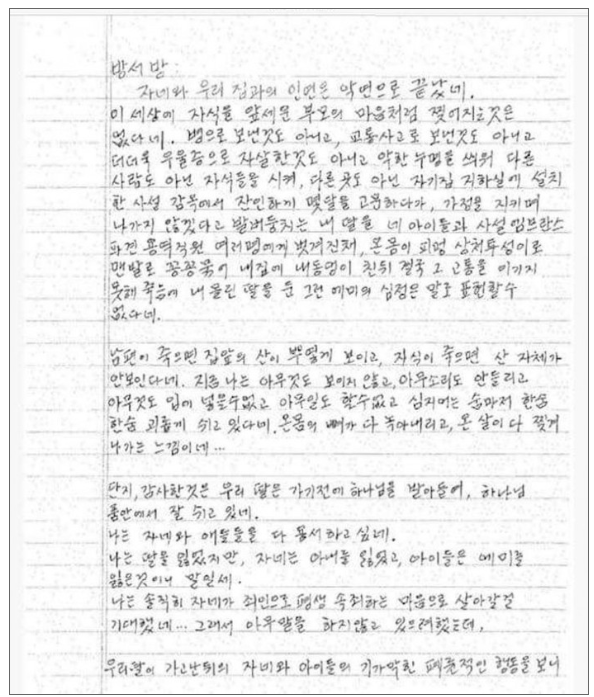 방서방:
자네와 우리 집과의 인연은 악연으로 끝났네.
이 세상에 자식을 앞세운 부모의 마음처럼 찢어지는것은
없다네. 병으로 보낸것도 아니고, 교통사고로 보낸것도 아니고
더더욱 우울증으로 자살한것도 아니고 악한 누명을 씌워 다른
사람도 아닌 자식들을 시켜, 다른곳도 아닌 자기집 지하실에 설치
한 사설 감옥에서 잔인하게 몇달을 고문하다가, 가정을 지키며
나가지 않겠다고 발버둥치는 내 딸을 네 아이들과 사설 엠브란스
파견 용역직원 여러명에게 벗겨진채, 온몸이 피멍 상처투성이로
맨발로 꽁꽁묶어 내집에 내동댕이 친뒤 결국 그 고통을 이기지
못해 죽음에 내 몰린 딸을 둔 그런 에미의 심정은 말로 표현할수
없다네.
남편이 죽으면 집앞의 산이 뿌옇게 보이고, 자식이 죽으면 산 자체가
안보인다네. 지금 나는 아무것도 보이지 않고, 아무소리도 안들리고
아무것도 입에 넣을수없고 아무일도 할수없고 심지어는 숨마저 한숨
한숨 괴롭게 쉬고 있다네. 온몸의 뼈가 다 녹아내리고, 온 살이 다 찢겨
나가는 느낌이네...
단지, 감사한것은 우리 딸은 가기전에 하나님을 받아들여, 하나님
품안에서 잘 쉬고 있네.
나는 자네와 애들들을 다 용서하고 싶네.
나는 딸을 잃었지만, 자네는 아내를 잃었고, 아이들은 에미를
잃은것이니 말일세.
나는 솔직히 자네가 죄인으로 평생 속죄하는 마음으로 살아갈걸
기대했네... 그래서 아무말을 하지않고 있으려했는데,
우리딸이 가고난뒤의 자네와 아이들의 기가막힌 패륜적인 행동을 보니